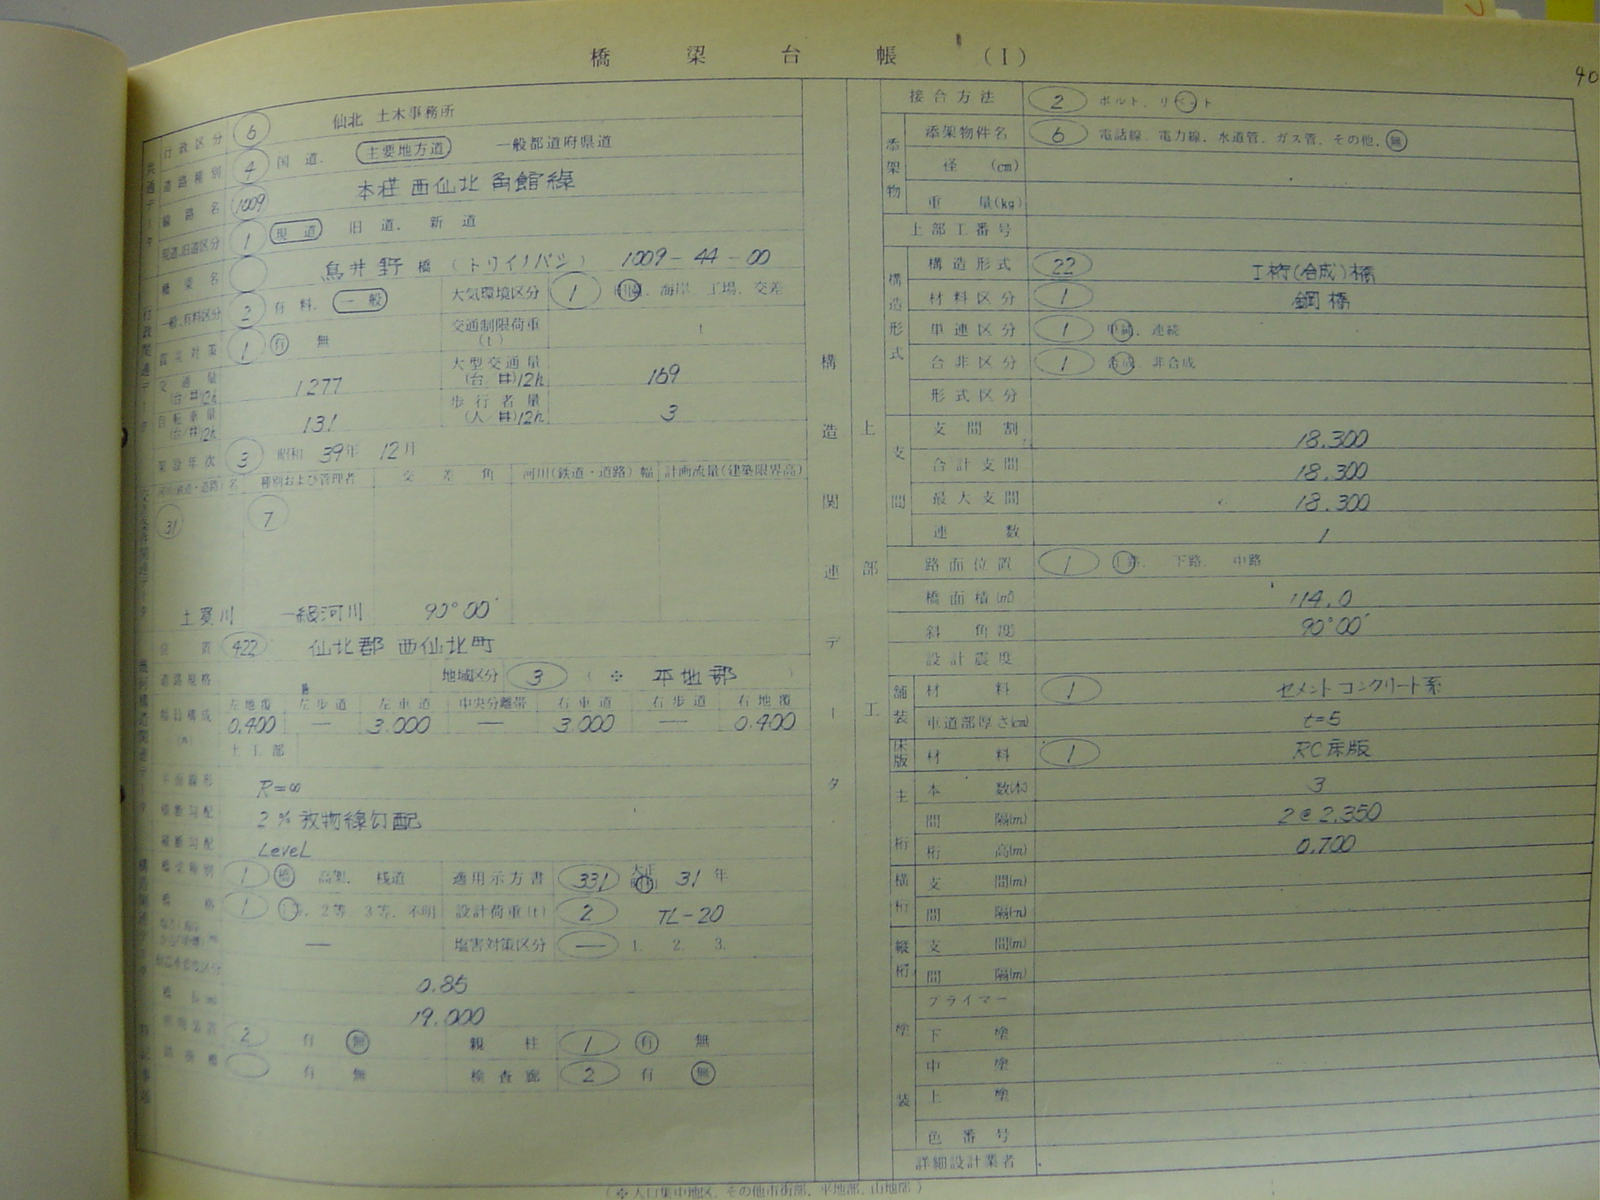 橋梁台帳 (I)
40
行政区分 6 仙北 土木事務所
道路種別 4 国道. 主要地方道 一般都道府県道
路線名 1009 本荘 西仙北 角館線
現道.旧道区分 1 現道 旧道. 新道
橋梁名 鳥井野橋 (トリイノバシ) 1009-44-00
一般.有料区分 2 有料. 一般 大気環境区分 1 海岸. 工場. 交差
震災対策 1 有 無 交通制限荷重(t) t
交通量 (台/日)12h 1277 大型交通量 (台/日)12h 169
自転車量 (台/日)12h 131 歩行者量 (人/日)12h 3
架設年次 3 昭和 39年 12月
河川(鉄道・道路)名 種別および管理者 交差角 河川(鉄道・道路)幅 計画流量(建築限界高)
31 7
土買川 一級河川 90°00′
位置 422 仙北郡 西仙北町
道路規格 地域区分 3 (※ 平地部 )
幅員構成 (m) 左地覆 左歩道 左車道 中央分離帯 右車道 右歩道 右地覆
0.400 — 3.000 — 3.000 — 0.400
土工部
平面線形 R=∞
2% 放物線勾配
横断勾配 Level
橋梁種別 1 橋 高架. 桟道 適用示方書 331 大正 31年
橋格 1 2等. 3等. 不明 設計荷重(t) 2 TL-20
— 塩害対策区分 — 1. 2. 3.
0.85
橋長(m) 19.000
2 有 無 親柱 1 有 無
有 無 検査廊 2 有 無
構造関連データ
上部工
接合方法 2 ボルト. リベット
添架物 添架物件名 6 電話線. 電力線. 水道管. ガス管. その他. 無
径 (cm)
重量(kg)
上部工番号
構造形式 構造形式 22 I桁(合成)橋
材料区分 1 鋼橋
単連区分 1 単純. 連続
合非区分 1 合成. 非合成
形式区分
支間 支間割 18.300
合計支間 18.300
最大支間 18.300
連数 1
路面位置 1 上路. 下路 中路
橋面積(㎡) 114.0
斜角(度) 90°00′
設計震度
舗装 材料 1 セメントコンクリート系
車道部厚さ(cm) t=5
床版 材料 1 RC床版
主桁 本数(本) 3
間隔(m) 2@2.350
桁高(m) 0.700
横桁 支間(m)
間隔(m)
縦桁 支間(m)
間隔(m)
塗装 プライマー
下塗
中塗
上塗
色番号
詳細設計業者
(※人口集中地区. その他市街部. 平地部. 山地部)